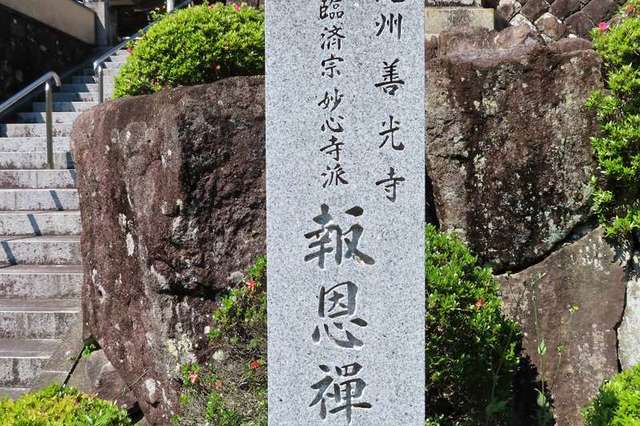 州善光寺
臨済宗妙心寺派
報恩禅